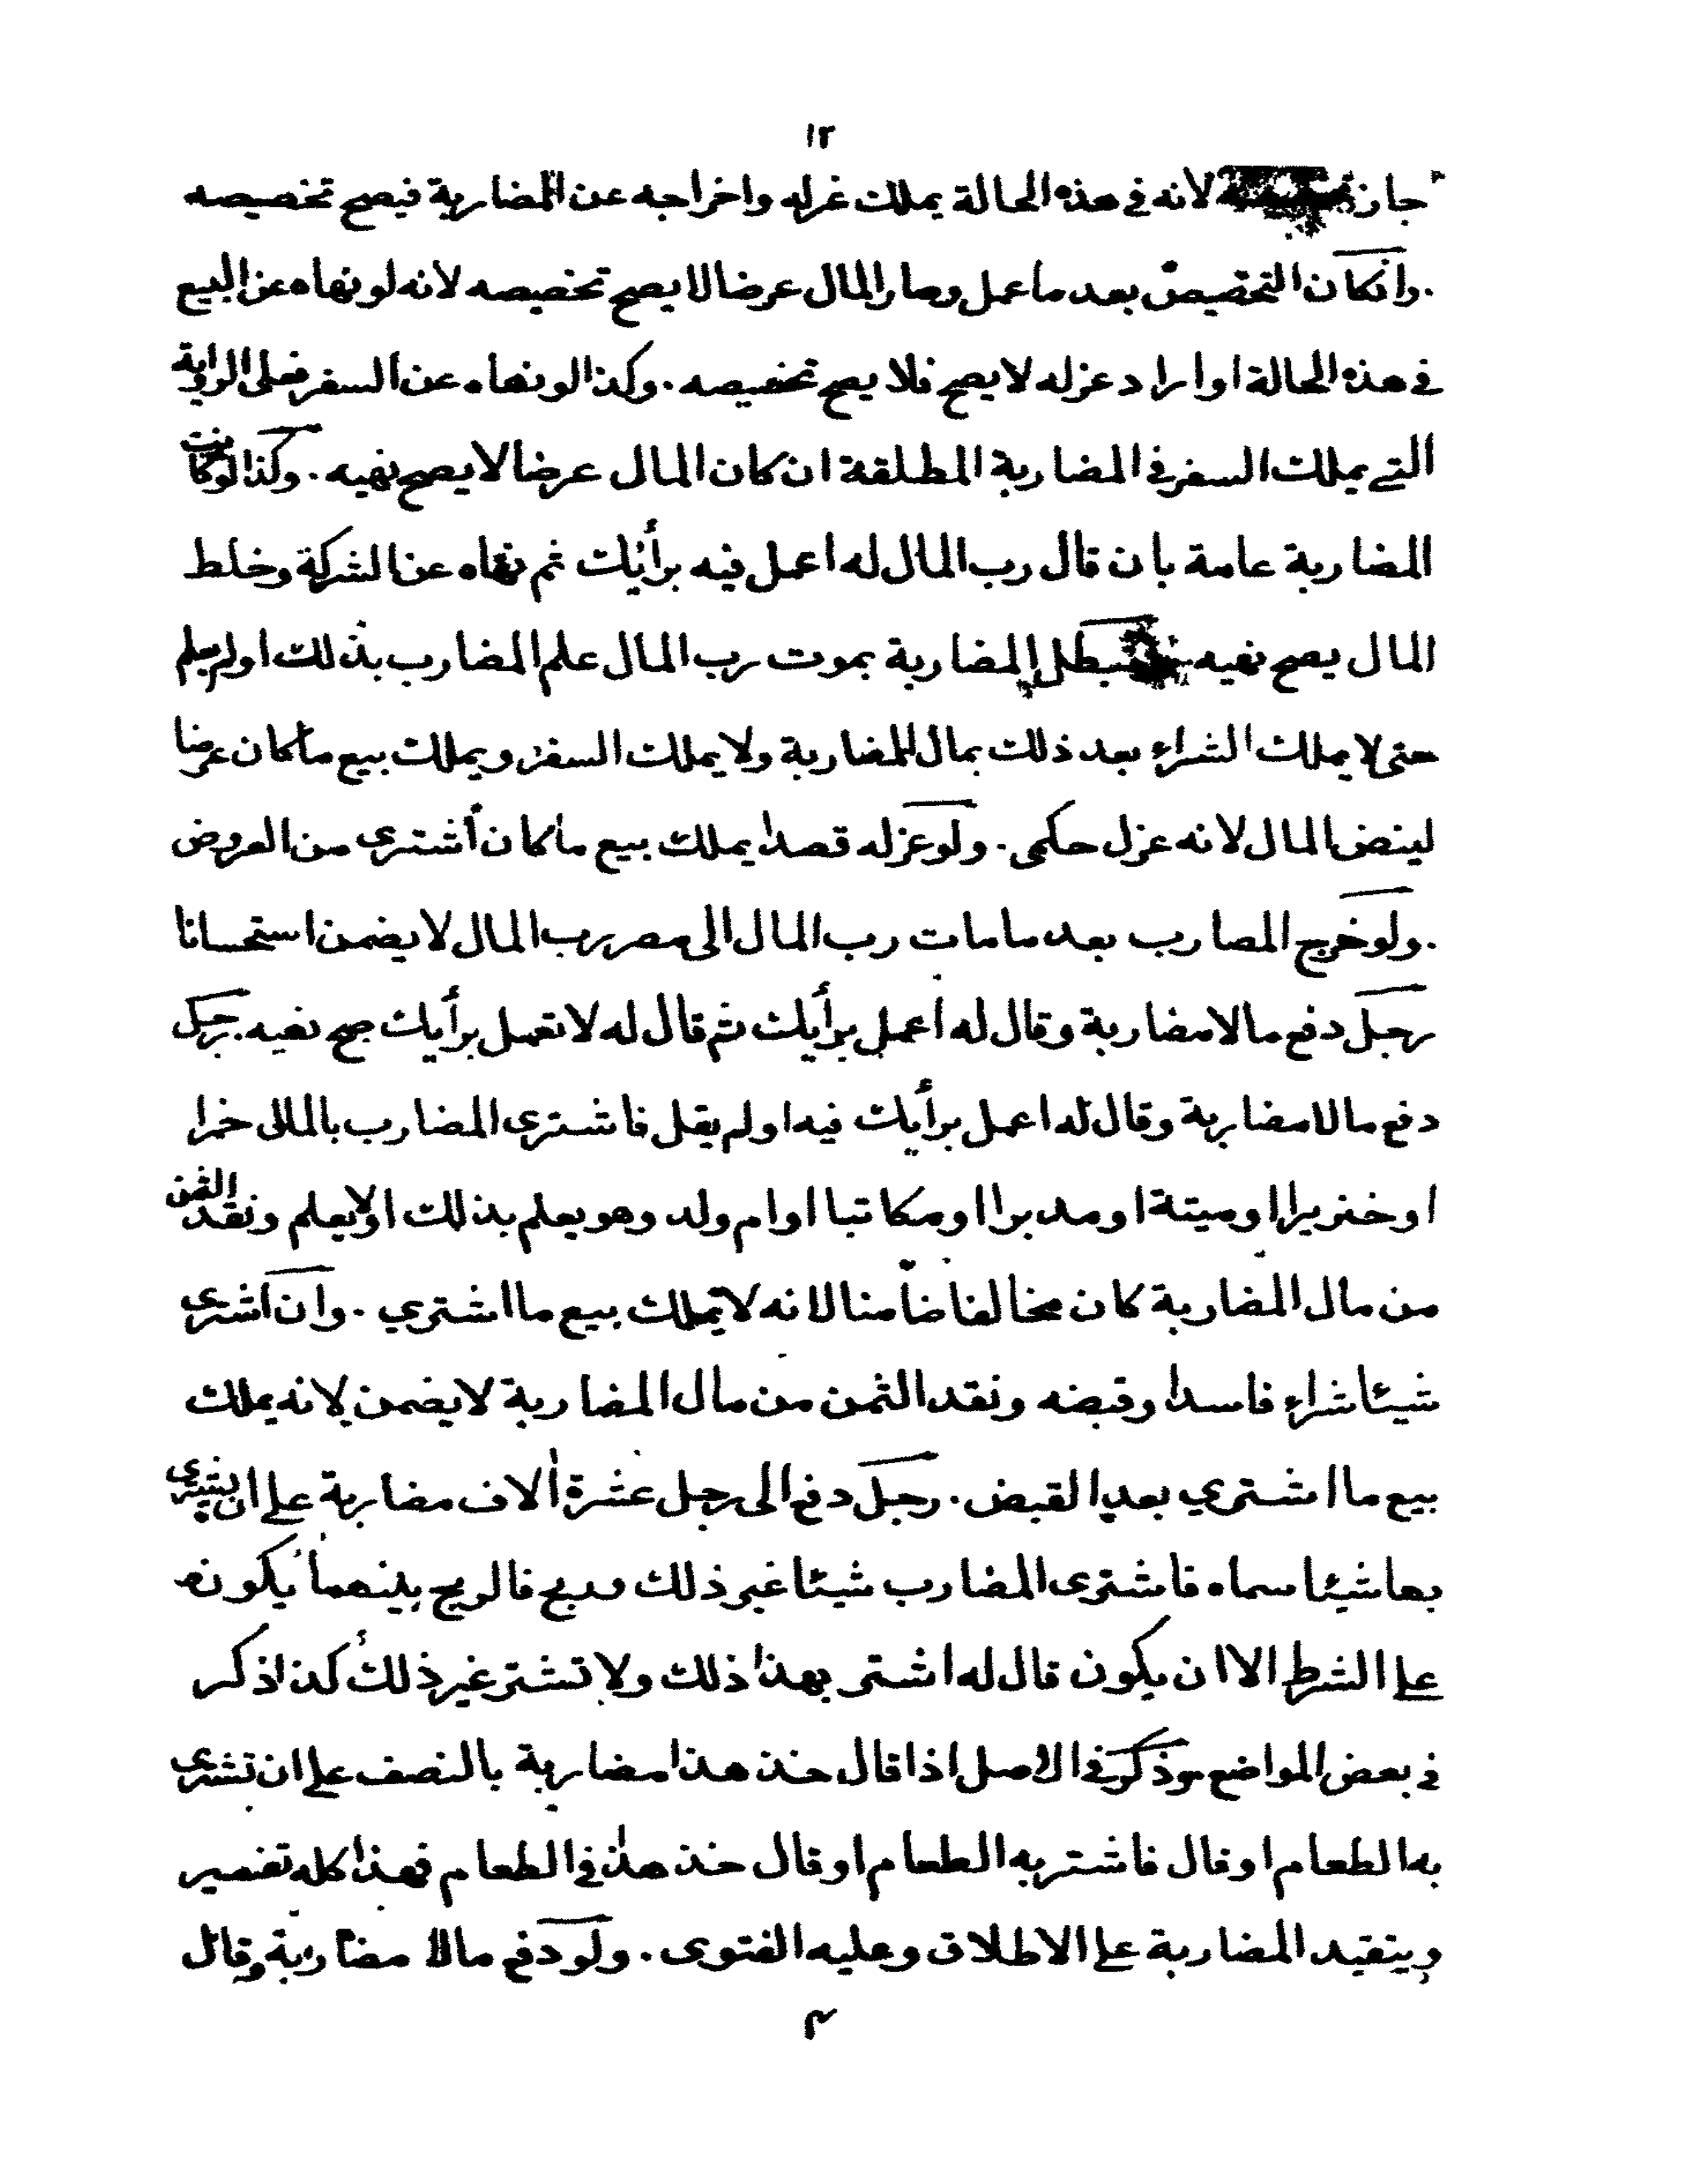 ١٢
جاز لانه في هذه الحالة يملك عزله واخراجه عن المضاربة فيصح تخصيصه
. وانكان التخصيص بعد ما عمل وصار المال عرضا لا يصح تخصيصه لانه لو نهاه عن البيع
في هذه الحالة او اراد عزله لا يصح فلا يصح تخصيصه . وكذا لو نهاه عن السفر فعلى الرواية
التي يملك السفر في المضاربة المطلقة ان كان المال عرضا لا يصح نهيه . وكذا لو كانت
المضاربة عامة بان قال رب المال له اعمل فيه برأيك ثم نهاه عن الشركة وخلط
المال يصح نهيه تبطل المضاربة بموت رب المال علم المضارب بذلك او لم يعلم
حتى لا يملك الشراء بعد ذلك بمال المضاربة ولا يملك السفر ويملك بيع ما كان عرضا
لينض المال لانه عزل حكمى . ولو عزله قصدا يملك بيع ما كان أشترى من العروض
. ولو خرج المضارب بعد ما مات رب المال الى مصر رب المال لا يضمن استحسانا
رجل دفع مالا مضاربة وقال له اعمل برأيك ثم قال له لا تعمل برأيك صح نهيه . رجل
دفع مالا مضاربة وقال له اعمل برأيك فيه او لم يقل فاشترى المضارب بالمال خمرا
او خنزيرا او ميتة او مدبرا او مكاتبا او ام ولد وهو يعلم بذلك او لا يعلم ونقد الثمن
من مال المضاربة كان مخالفا ضامنا لانه لا يملك بيع ما اشتري . وان اشترى
شيئا شراء فاسدا وقبضه ونقد الثمن من مال المضاربة لا يضمن لانه يملك
بيع ما اشتري بعد القبض . رجل دفع الى رجل عشرة ألاف مضاربة على ان يشترى
بها شيئا سماه فاشترى المضارب شيئا غير ذلك وربح فالربح بينهما يكون
على الشرط الا ان يكون قال له اشترى بهذا ذلك ولا تشتر غير ذلك كذا ذكر
في بعض المواضع وذكر في الاصل اذا قال خذ هذا مضاربة بالنصف على ان تشترى
به الطعام او قال فاشتر به الطعام او قال خذ هذا في الطعام فهذا كله تفسير
ويتقيد المضاربة على الاطلاق وعليه الفتوى . ولو دفع مالا مضاربة وقال